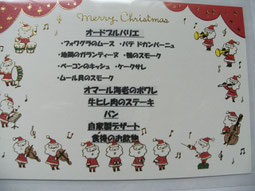 Merry Christmas
オードブルバリエ
・フォワグラのムース ・パテ ドカンパーニュ
・地鶏のガランティーヌ ・鴨のスモーク
・ベーコンのキッシュ ・ケークサレ
・ムール貝のスモーク
オマール海老のポワレ
牛ヒレ肉のステーキ
パン
自家製デザート
食後のお飲物